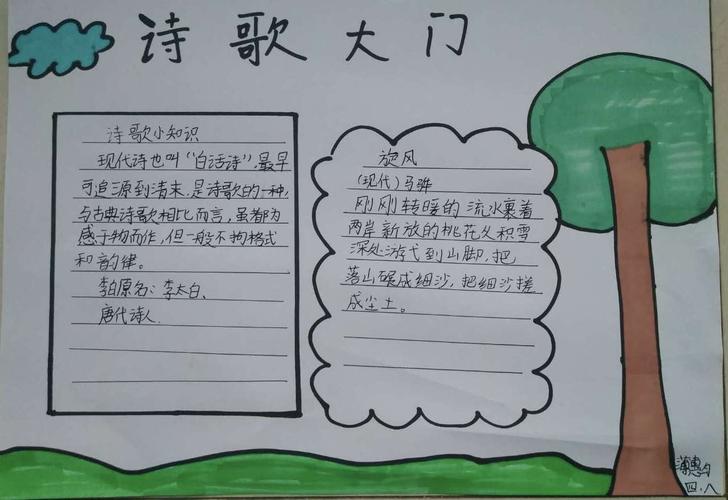 诗歌大门
诗歌小知识
现代诗也叫“白话诗”,最早
可追源到清末,是诗歌的一种,
与古典诗歌相比而言,虽都为
感于物而作,但一般不拘格式
和韵律。
李白原名:李太白、
唐代诗人
旋风
(现代)马骅
刚刚转暖的流水裹着
两岸新放的桃花从积雪
深处游弋到山脚,把
落山碾成细沙,把细沙搓
成尘土。
四.八